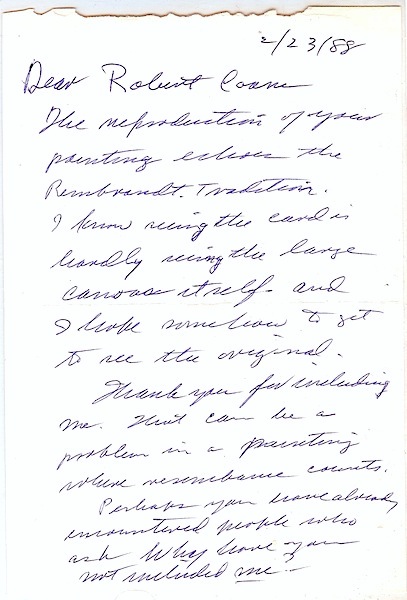 2/23/88
Dear Robert Coane
The reproduction of your
painting echoes the
Rembrandt. Tradition.
I know seeing the card is
hardly seeing the large
canvas itself. and
I hope somehow to get
to see the original.
Thank you for including
me. That can be a
problem in a painting
where resemblance counts.
Perhaps you have already
encountered people who
ask Why have you
not included me.